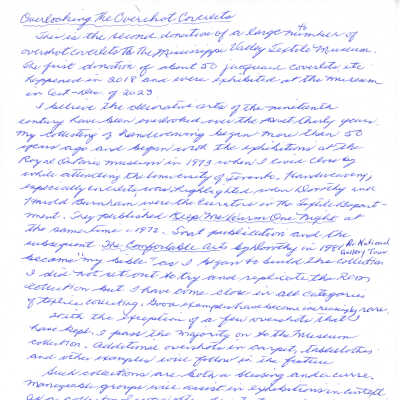 Overlooking The Overshot Coverlets
This is the second donation of a large number of
overshot coverlets to the Mississippi Valley Textile Museum.
The first donation of about 50 jacquard coverlets etc
happened in 2018 and were exhibited at the museum
in Oct - Dec of 2023
I believe the decorative arts of the nineteenth
century have been overlooked over the past thirty years.
My collecting of handweaving began more than 50
years ago and began with the exhibitions at the
Royal Ontario Museum in 1973 when I lived close by
while attending the University of Toronto. Handweaving,
especially coverlets, was highlighted when Dorothy and
Harold Burnham were the curators in the Textile Depart-
ment. They published Keep Me Warm One Night at
the same time - 1972. That publication and the
subsequent The Comfortable Arts by Dorothy in 1981 for National Gallery Tour
became "my bible" as I began to build the collection
I did not set out to try and replicate the ROM
collection but I have come close in all categories
of textile collecting. Good examples have become increasingly rare.
With the exception of a few overshots that I
have kept, I pass the majority on to the Museum
collection. Additional overshots in carpet, tablecloths
and other examples will follow in the future
Such collections are both a blessing and a curse.
Manageable groups will assist in exhibitions in